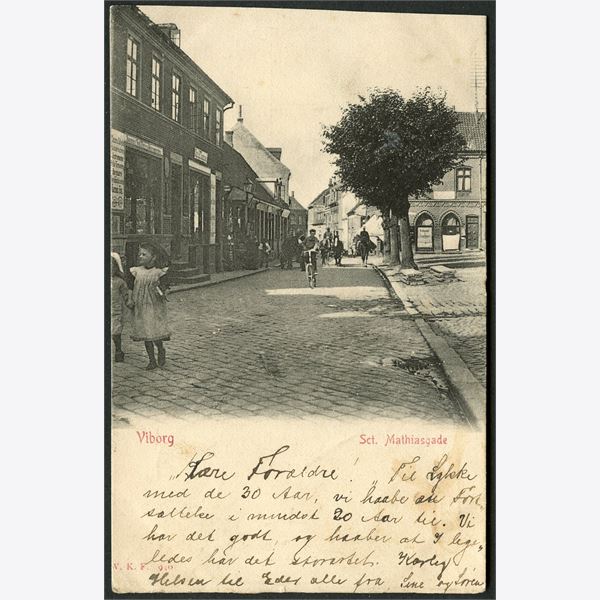 Viborg
Sct. Mathiasgade
Kære Forældre! Til Lykke
med de 30 Aar, vi haabe en Fort
sættelse i mindst 20 Aar til. Vi
har det godt, og haaber at I lige„
ledes har det storartet. Kærlig
Hilsen til Eder alle fra, Sine og Søren
V. K. F.